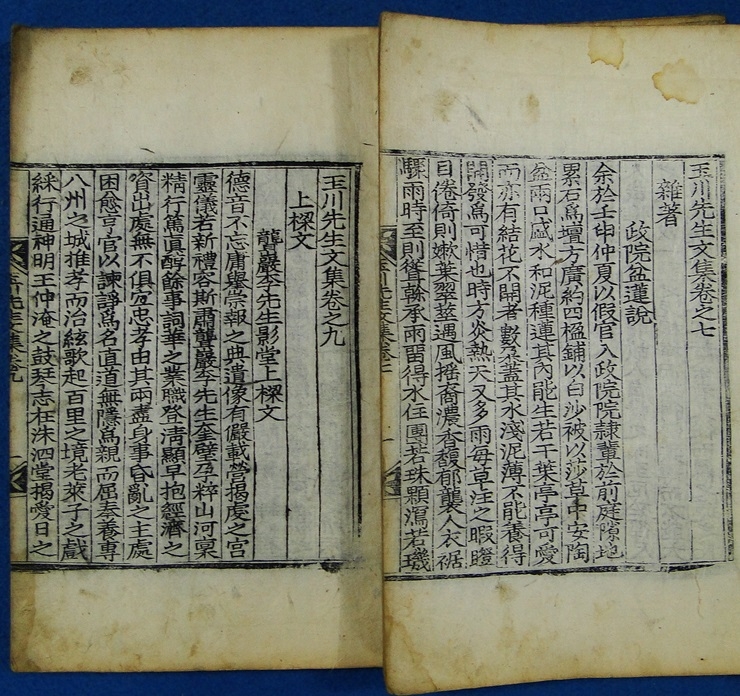 玉川先生文集卷之七
雜著
政院盆蓮說
余於壬申仲夏以假官入政院院隷輩於前庭隙地
累石爲壇方廣約四楹鋪以白沙被以莎草中安陶
盆兩口盛水和泥種蓮其內能生若干葉亭亭可愛
而亦有結花不開者數朶蓋其水淺泥薄不能養得
開發爲可惜也時方炎熱天又多雨每草注之暇瞪
目倦倚則嫩葉翠莖遇風搖裔濃香馥郁襲人衣裾
驟雨時至則聳幹承雨留得水住團若珠顆瀉若璣
玉川先生文集卷之九
上樑文
聾巖李先生影堂上樑文
德音不忘庸擧崇報之典遺像有儼載營揭虔之宮
靈儀若新禮容斯肅聾巖李先生奎璧孕粹山河稟
精行篤眞醇餘事詞華之業職登淸顯早抱經濟之
資出處無不俱宜忠孝由其兩盡身事昏亂之主處
困愈亨官以諫諍爲名直道無隱爲親而屈奉養專
八州之城推孝而治絃歌起百里之境老萊子之戱
綵行通神明王仲淹之鼓琴志在洙泗堂揭愛日之